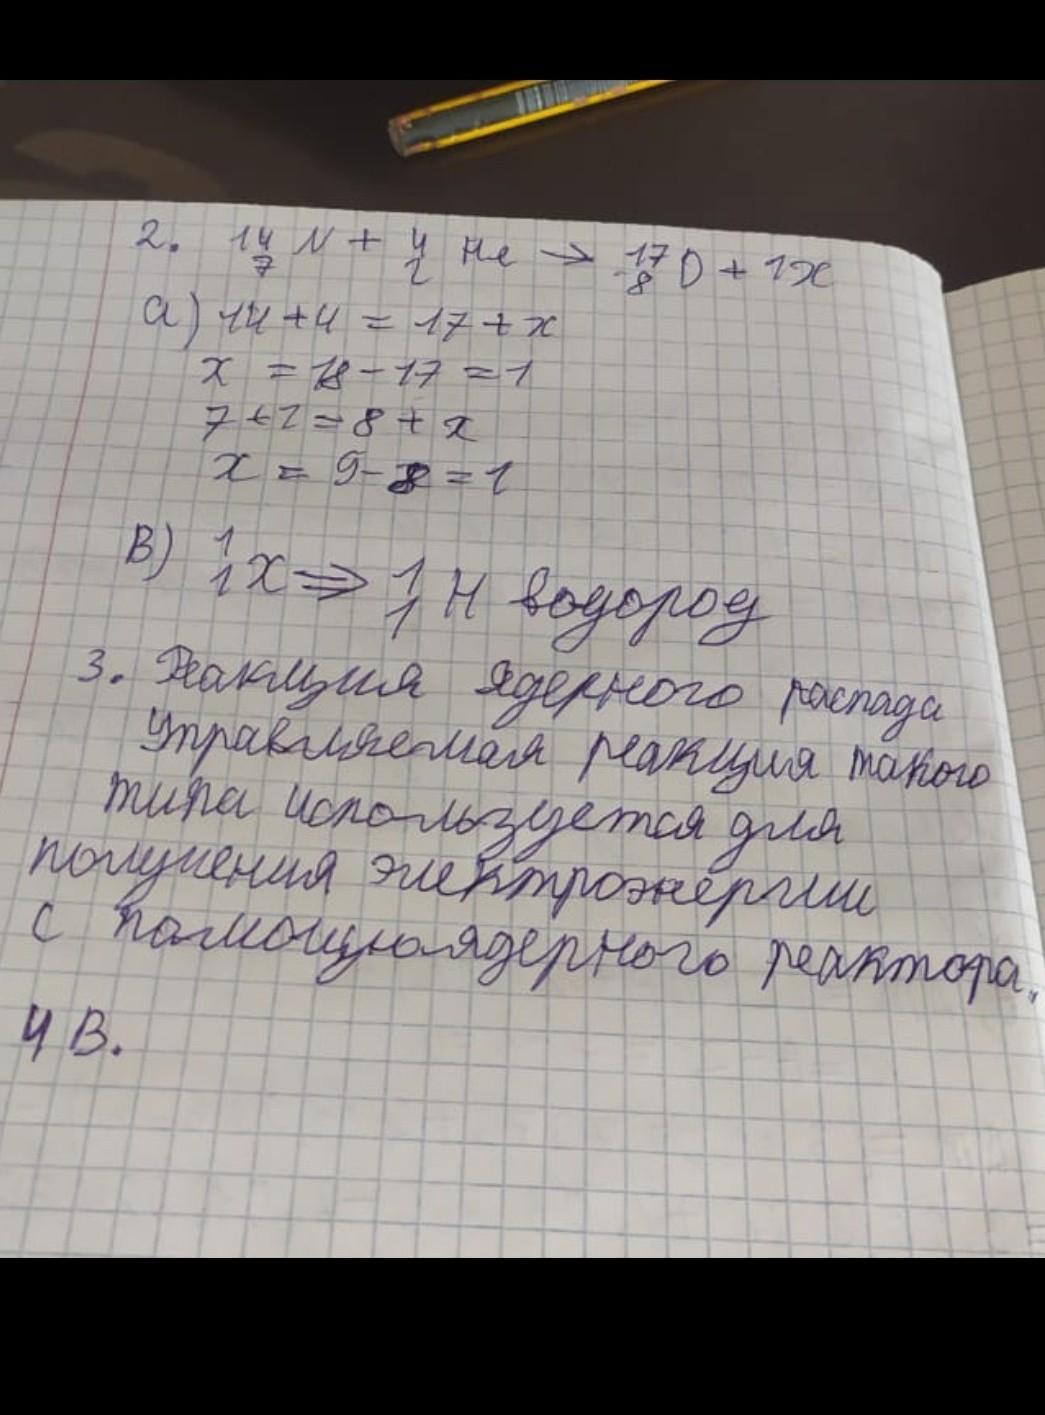 2. ¹⁴₇N + ⁴₂He → ¹⁷₈O + 1x
а) 14+4 = 17+x
x = 18-17 = 1
7+2=8+x
x = 9-8=1
В) ¹₁X ⇒ ¹₁H водород
3. Реакция ядерного распада
Управляемая реакция такого
типа используется для
получения электроэнергии
с памощью ядерного реактора.
4 В.